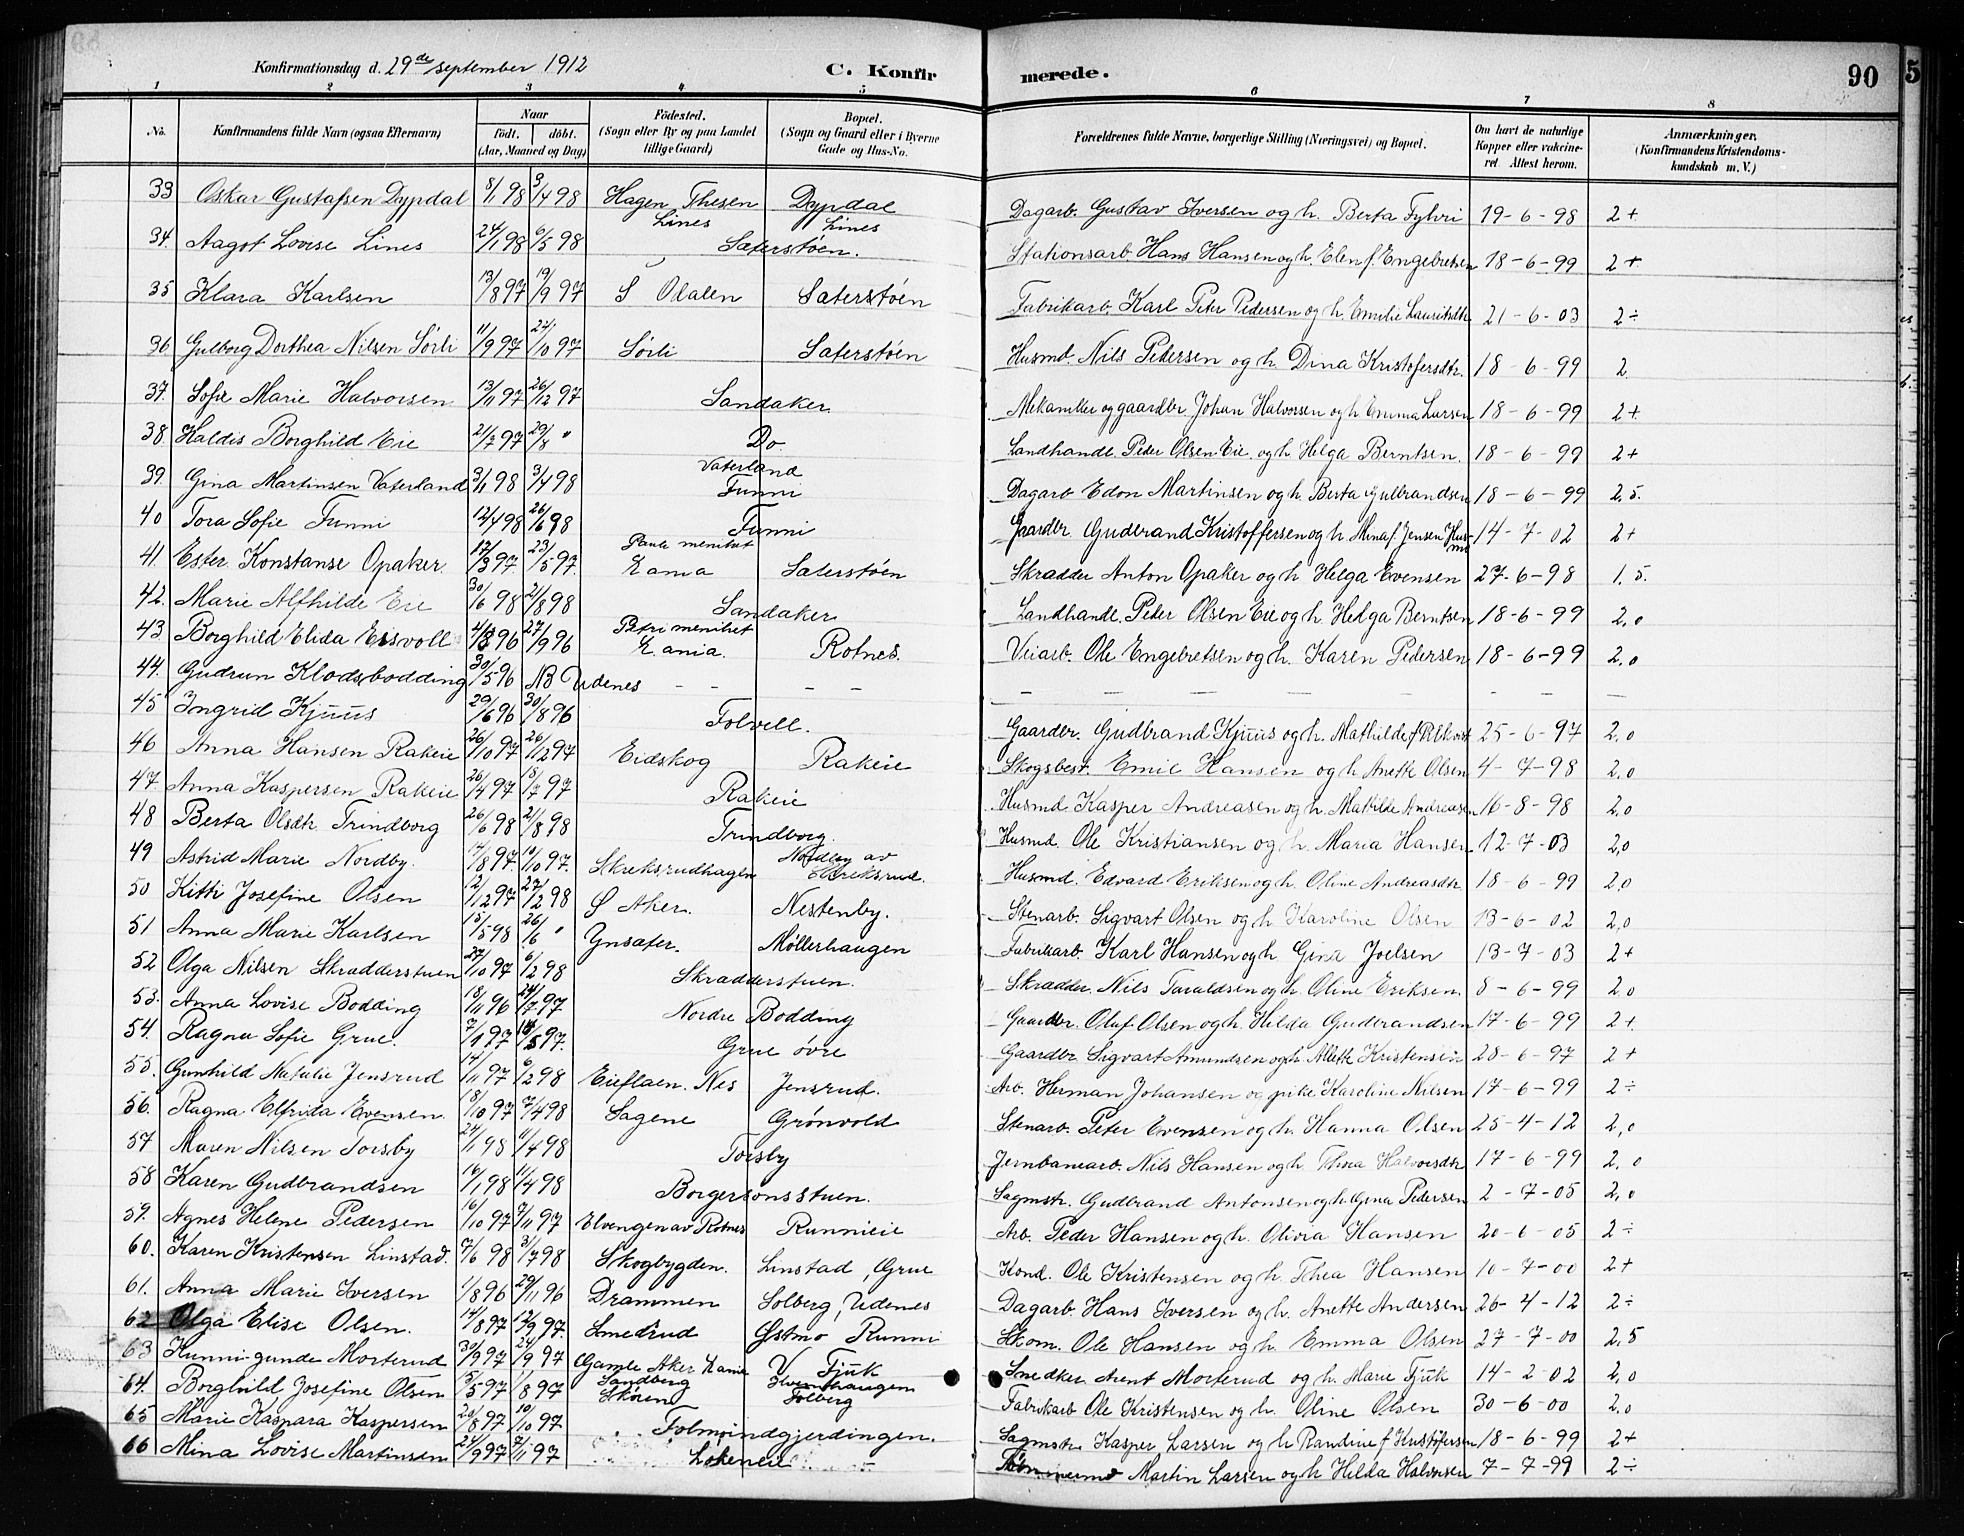 Konfirmationsdag d. 29de september 1912 C. Konfirmerede. 90
1 2 3 4 5 6 7 8
No. Konfirmandens fulde Navn (ogsaa Efternavn) Naar født. døbt. (Aar, Maaned og Dag) Fødested. (Sogn eller By og paa Landet tillige Gaard) Bopæl. (Sogn og Gaard eller i Byerne Gade og Hus-No. Forældrenes fulde Navne, borgerlige Stilling (Næringsvei) og Bopæl. Om havt de naturlige Kopper eller vakcineret. Attest herom. Anmærkninger. (Konfirmandens Kristendomskundskab m. V.)
33 Oskar Gustafsen Dypdal 8/1 98 3/4 98 Hagen Thesen Dypdal Dagarb. Gustav Iversen og h. Berta 19-6-98 2+
34. Aagot Lovise Lines 24/1 98 6/5 98 Lines Lines Sæterstøen. Stationsarb. Hans Hansen og h. Elen f. Engebretsen 18-6-99 2+
35 Klara Karlsen 13/8 97 19/9 97 S Odalen Sæterstøen Fabrikarb. Karl Peter Pedersen og h. Emilie Lauritsdtr 21-6-03 2÷
36. Gulborg Dorthea Nilsen Sørli 11/9 97 24/10 97 Sørli Sæterstøen Husmd. Nils Pedersen og h. Dina Kristofersdtr. 18-6-99 2
37. Sofie Marie Halvorsen 13/11 97 26/12 97 Sandaker Mekaniker og gaardbr Johan Halvorsen og h Emma Larsen 18-6-99 2+
38. Haldis Borghild Eie 21/7 97 29/8 " Do. Landhandl. Peder Olsen Eie og h Helga Berntsen. 18-6-99 2+
39. Gina Martinsen Vaterland 3/1 98 3/4 98 Vaterland Funni Dagarb Edon Martinsen og h. Berta Gulbrandsen 18-6-99 2,5.
40 Tora Sofie Funni 12/4 98 26/6 98 Funni Gaardbr Gudbrand Kristoffersen og h Mina f. Jensen 14-7-02 2+
41. Ester Konstanse Opaker 17/3 97 23/5 97. menihet Kania Sæterstøen Skrædder Anton Opaker og h Helga Evensen 27-6-98 1,5.
42. Marie Alfhilde Eie 30/6 98 21/8 98 Sandaker Landhandl. Peder Olsen Eie og h. Helga Berntsen 18-6-99 2,0
43 Borghild Elida Eisvoll 4/8 96 27/9 96 Petri menihet Kania. Rotnes. Veiarb. Ole Engebretsen og h. Karen Pedersen 18-6-99 2,0
44. Gudrun Klodsbodding 30/5 96 NB Udenes - - - - - - - - - -
45 Ingrid Kjuus 29/6 96 30/8 96 Tolvell. Gaardbr. Gudbrand Kjuus og h. Mathilde 25-6-97 2,0
46 Anna Hansen Rakeie 26/10 97 26/12 97 Eidskog Rakeie Skogsbest. Emil Hansen og h Anette Olsen 4-7-98 2,0
47. Anna Kaspersen Rakeie 26/4 97 18/7 97 Rakeie Husmd Kasper Andreasen og h. Mathilde Andreasen 16-8-98 2,0
48 Berta Olsdtr. Trindborg 26/6 98 21/8 98 Trindborg. Husmd. Ole Kristiansen og h. Maria Hansen 12-7-03 2,0
49 Astrid Marie Nordby. 14/8 97. 10/10 97. Skreksrudhagen Nordby av Skreksrud. Husmd. Edvard Eriksen og h. Oline Andreasdtr 18-6-99 2,0
50 Kitti Josefine Olsen 12/12 97 27/2 98 S Aker. Nestenby. Stenarb. Sigvart Olsen og h Karoline Olsen 13-6-02 2,0
51 Anna Marie Karlsen 15/5 98 26/6 " Ynsæter. Møllerhaugen Fabrikarb. Karl Hansen og h Gina Joelsen 13-7-03 2+
52 Olga Nilsen Skrædderstuen 27/10 97 6/2 98 Skrædderstuen. Skrædder. Nils Taraldsen og h. Oline Eriksen. 8-6-99 2,0
53. Anna Lovise Bodding 18/11 96 24/1 97 Nordre Bodding Gaardbr. Olaf Olsen og h. Hilda Gudbrandsen 17-6-99 2+
54. Ragna Sofie Grue. 7/1 97 18/5 97. Grue øvre Gaardbr Sigvart Amundsen og h. Alette Kristensen 28-6-97 2+
55. Gunhild Natalie Jensrud 14/11 97 6/2 98 Eieflaen. Nes Jensrud. Arb. Herman Johansen og pike Karoline Nilsen 17-6-99 2÷
56. Ragna Elfrida Evensen 18/10 97 7/4 98 Sagene Grønvold Stenarb. Peter Evensen og h. Hanna Olsen 25-4-12 2,0
57 Maren Nilsen Torsby 24/1 98 11/4 98 Torsby Jernbanearb. Nils Hansen og h. Thora Halvorsdtr 17-6-99 2,0
58 Karen Gudbrandsen 16/1 98 11/4 98 Borgersonsstuen. Sagmstr. Gudbrand Antonsen og h. Gina Pedersen 2-7-05 2,0
59. Agnes Helene Pedersen 16/10 97 7/11 97 Elvengen av Rotnes Runnieie Arb. Peder Hansen og h. Olivia Hansen 20-6-05 2÷
60. Karen Kristensen Linstad. 7/6 98 31/7 98 Skogbygden. Linstad, Grue Kond. Ole Kristensen og h. Thea Hansen 10-7-00 2+
61. Anna Marie Iversen 1/8 96 29/11 96 Drammen Solberg, Udenes Dagarb Hans Iversen og h. Anette Andersen 26-4-12 2÷
62 Olga Elise Olsen. 14/8 97 12/9 97. Smedrud Østmo Runni Skom. Ole Hansen og h. Emma Olsen 27-7-00 2,5
63 Kunnigunde Morterud 30/9 97 24/9 97 Gamle Aker Kania V Fjuk Smedker Arent Morterud og h. Marie Fjuk 14-2-02 2,0
64. Borghild Josefine Olsen 15/5 97 1/8 97 Sandberg Skøien Folberg Fabrikarb Ole Kristensen og h. Oline Olsen 30-6-00 2,0
65 Marie Kaspara Kaspersen 20/8 97 10/10 97 Folmoindgjerdingen. Sagmstr. Kasper Larsen og h Randine f Kristofersen 18-6-99 2+
66 Mina Lovise Martinsen 24/9 97 7/11 97 Løkeneie Tømmermd Martin Larsen og h Hilda Halvorsen 7-7-99 2÷